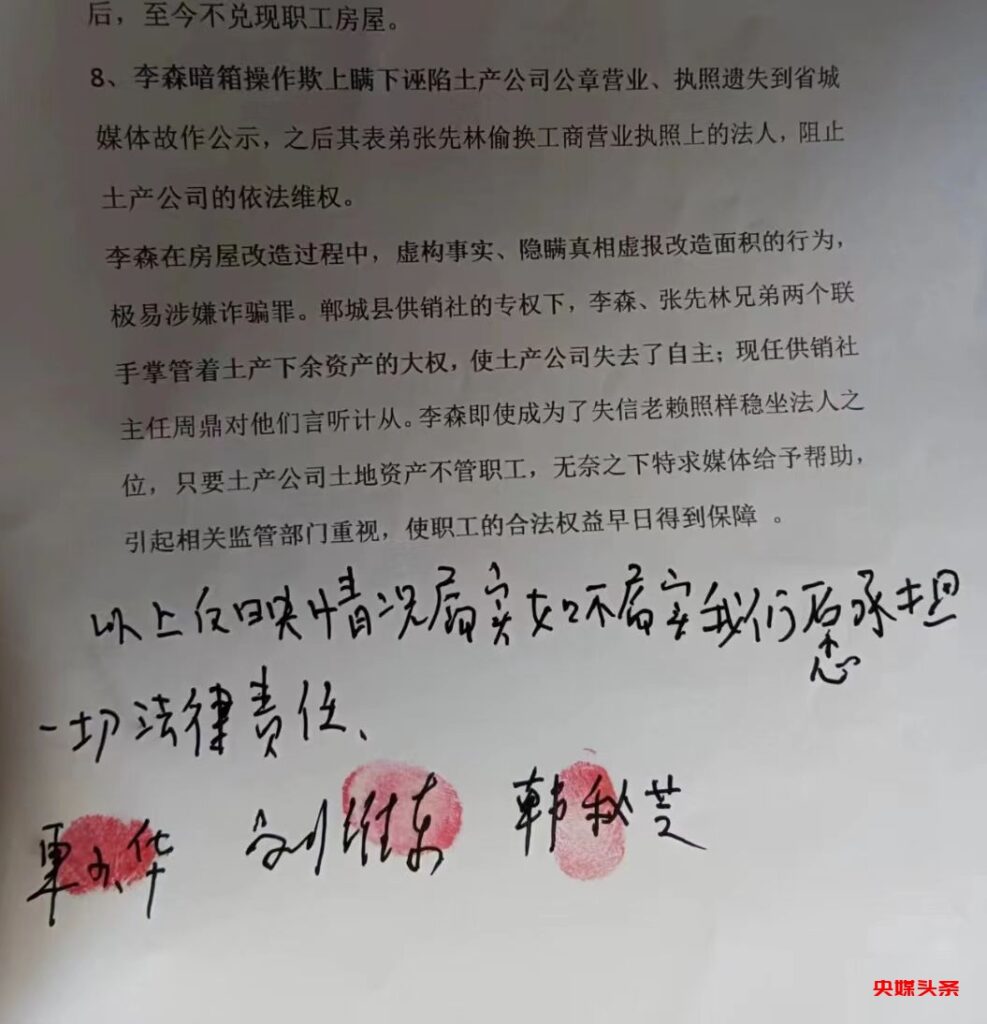 后，至今不兑现职工房屋。
8、李森暗箱操作欺上瞒下诬陷土产公司公章营业、执照遗失到省城
媒体故作公示，之后其表弟张先林偷换工商营业执照上的法人，阻止
土产公司的依法维权。
李森在房屋改造过程中，虚构事实、隐瞒真相虚报改造面积的行为，
极易涉嫌诈骗罪。郸城县供销社的专权下，李森、张先林兄弟两个联
手掌管着土产下余资产的大权，使土产公司失去了自主；现任供销社
主任周鼎对他们言听计从。李森即使成为了失信老赖照样稳坐法人之
位，只要土产公司土地资产不管职工，无奈之下特求媒体给予帮助，
引起相关监管部门重视，使职工的合法权益早日得到保障 。
以上反映情况属实如不属实我们愿承担
一切法律责任、
刘维东 韩秋芝
央媒头条